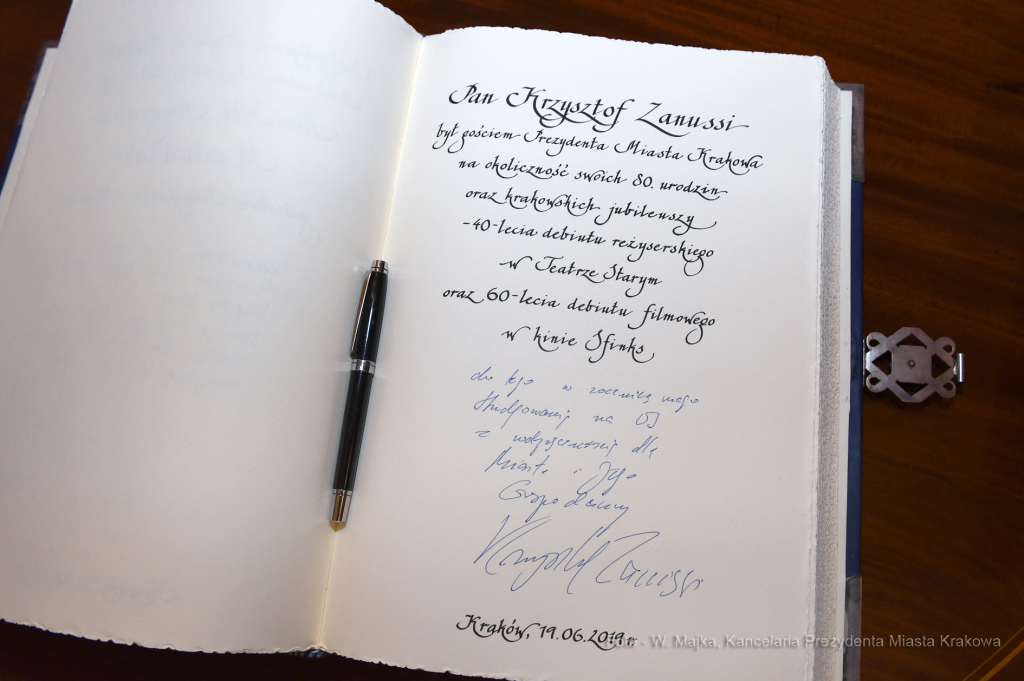 Pan Krzysztof Zanussi
był gościem Prezydenta Miasta Krakowa
na okoliczność swoich 80. urodzin
oraz krakowskich jubileuszy
-40-lecia debiutu reżyserskiego
w Teatrze Starym
oraz 60-lecia debiutu filmowego
w kinie Sfinks
do tego w rocznicę mego
studiowania na UJ
z wdzięcznością dla
Miasta i Jego
Gospodarzy
Krzysztof Zanussi
Kraków, 19.06.2019r.
- W. Majka, Kancelaria Prezydenta Miasta Krakowa